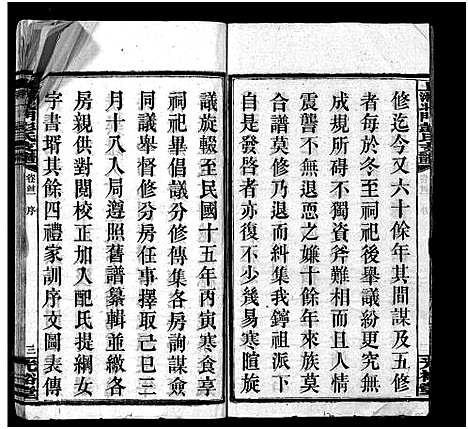 修迄今又六十餘年其間謀及五修
者莫不於冬至祠祀後舉議紛紛莫
成規所得不獨資斧難相而人情
震聾不無退恧之嫌十餘年來故莫
合譜莫修乃退而糾集我鐏祖派下
自是發啓者亦復不少幾易寒暄旋
議旋輟至民國十五年丙寅寒食享
祠祀畢集議分修傳集各房詢謀僉
同議舉督修分房任事擇取仲冬
月十八入局遵照舊譜纂輯並繳各
房親供對閱校正加入配氏提綱女
字書壻其餘四禮家訓序文圖表傳
卷首 序
三 光裕堂